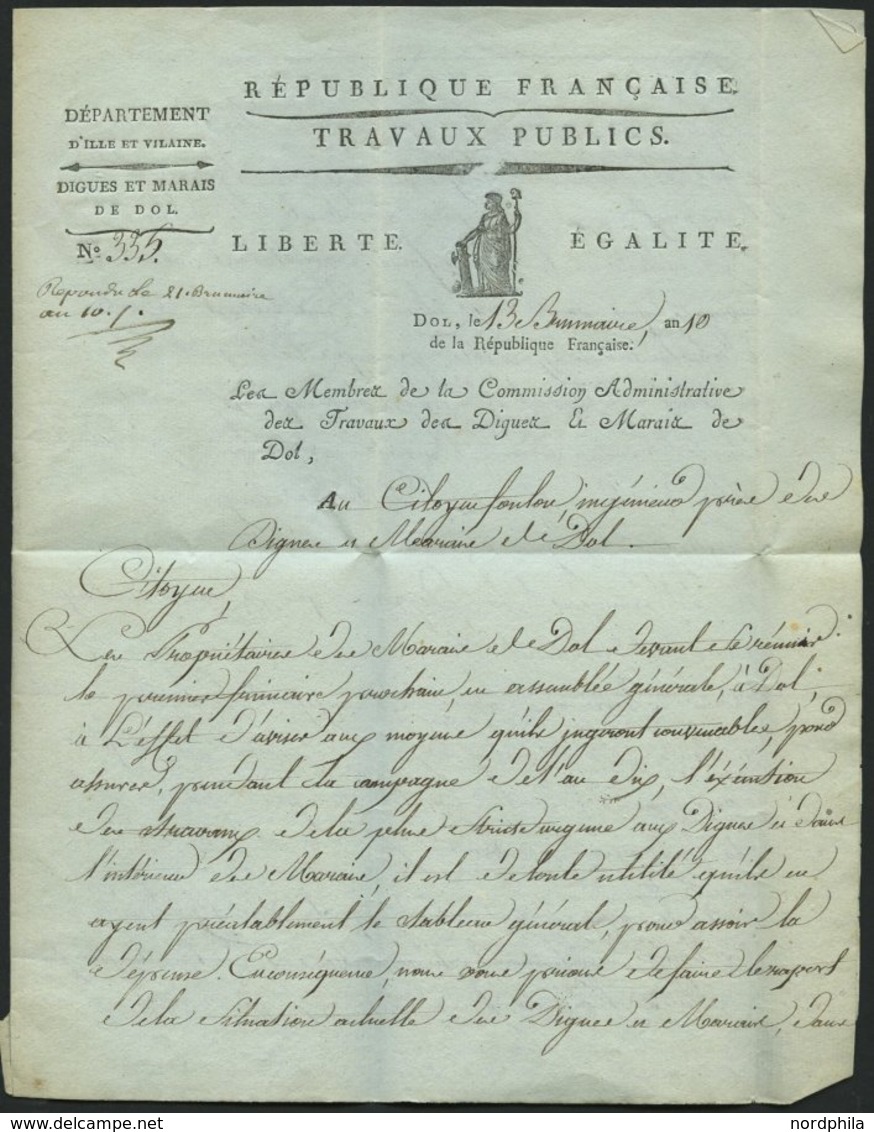 RÉPUBLIQUE FRANÇAISE.
TRAVAUX PUBLICS.
DÉPARTEMENT
D'ILLE ET VILAINE.
DIGUES ET MARAIS
DE DOL.
No. 335.
LIBERTE. ÉGALITE.
Repondu le 21. Brumaire
an 10.
DOL, le 13 Brumaire, an 10
de la République Française.
Les Membres de la Commission Administrative
des Travaux des Digues Et Marais de
Dol,
Au Citoyen foulon, ingénieur près des
Digues et Marais de Dol.
Citoyen,
Les Propriétaires des Marais de Dol devant se réunir
le premier frimaire prochain, en assemblée générale, à Dol,
à L'éffet d'aviser aux moyens qu'ils jugeront convenables, pour
assurer, pendant la campagne de l'an dix, l'éxécution
des travaux de la plus stricte urgence aux Digues et dans
l'intérieur des Marais, il est de toute utilité qu'ils en
ayent préalablement le tableau général, pour assoir la
dépense. En conséquence, nous vous prions de faire le raport
de la situation actuelle des Digues et Marais, dans
nordphila